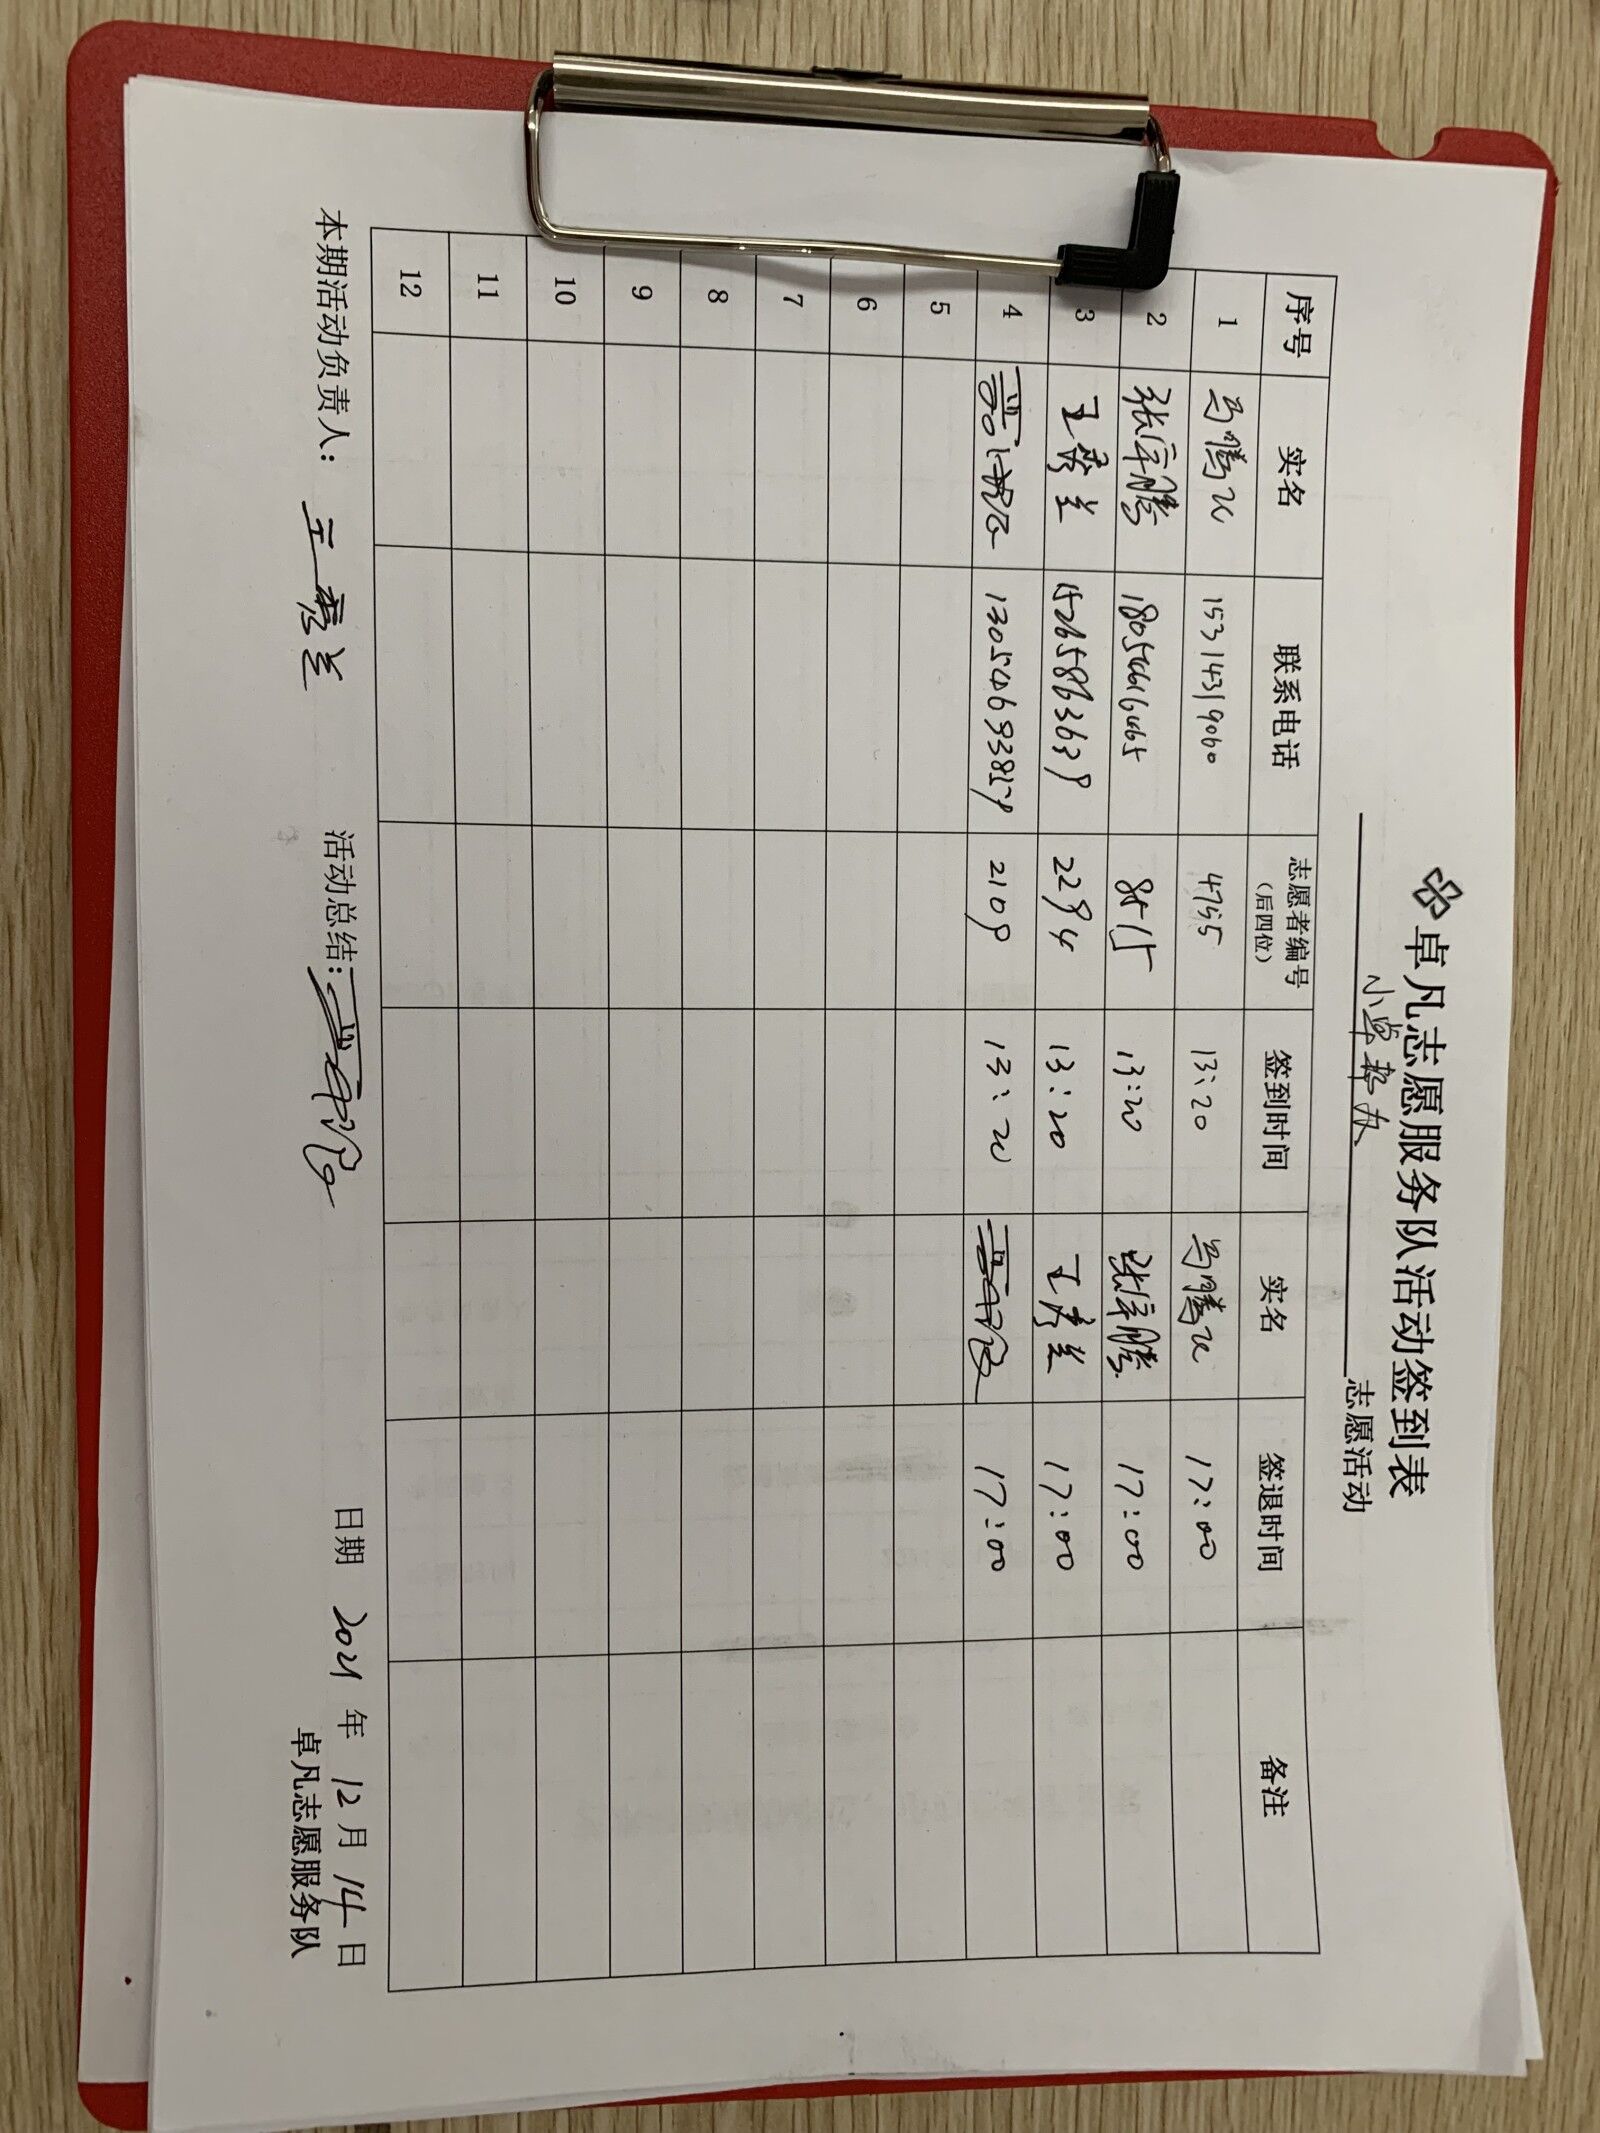 卓凡志愿服务队活动签到表
志愿活动
序号 实名 联系电话 志愿者编号（后四位） 签到时间 实名 签退时间 备注
1 马腾 15314319060 4755 13:20 马腾 17:00
2 张宇腾 8515 13:20 张宇腾 17:00
3 王秀兰 15265863639 2294 13:20 王秀兰 17:00
4 13054693859 2109 13:20 17:00
5
6
7
8
9
10
11
12
本期活动负责人：王秀兰 活动总结： 日期 2021 年 12 月 14 日
卓凡志愿服务队